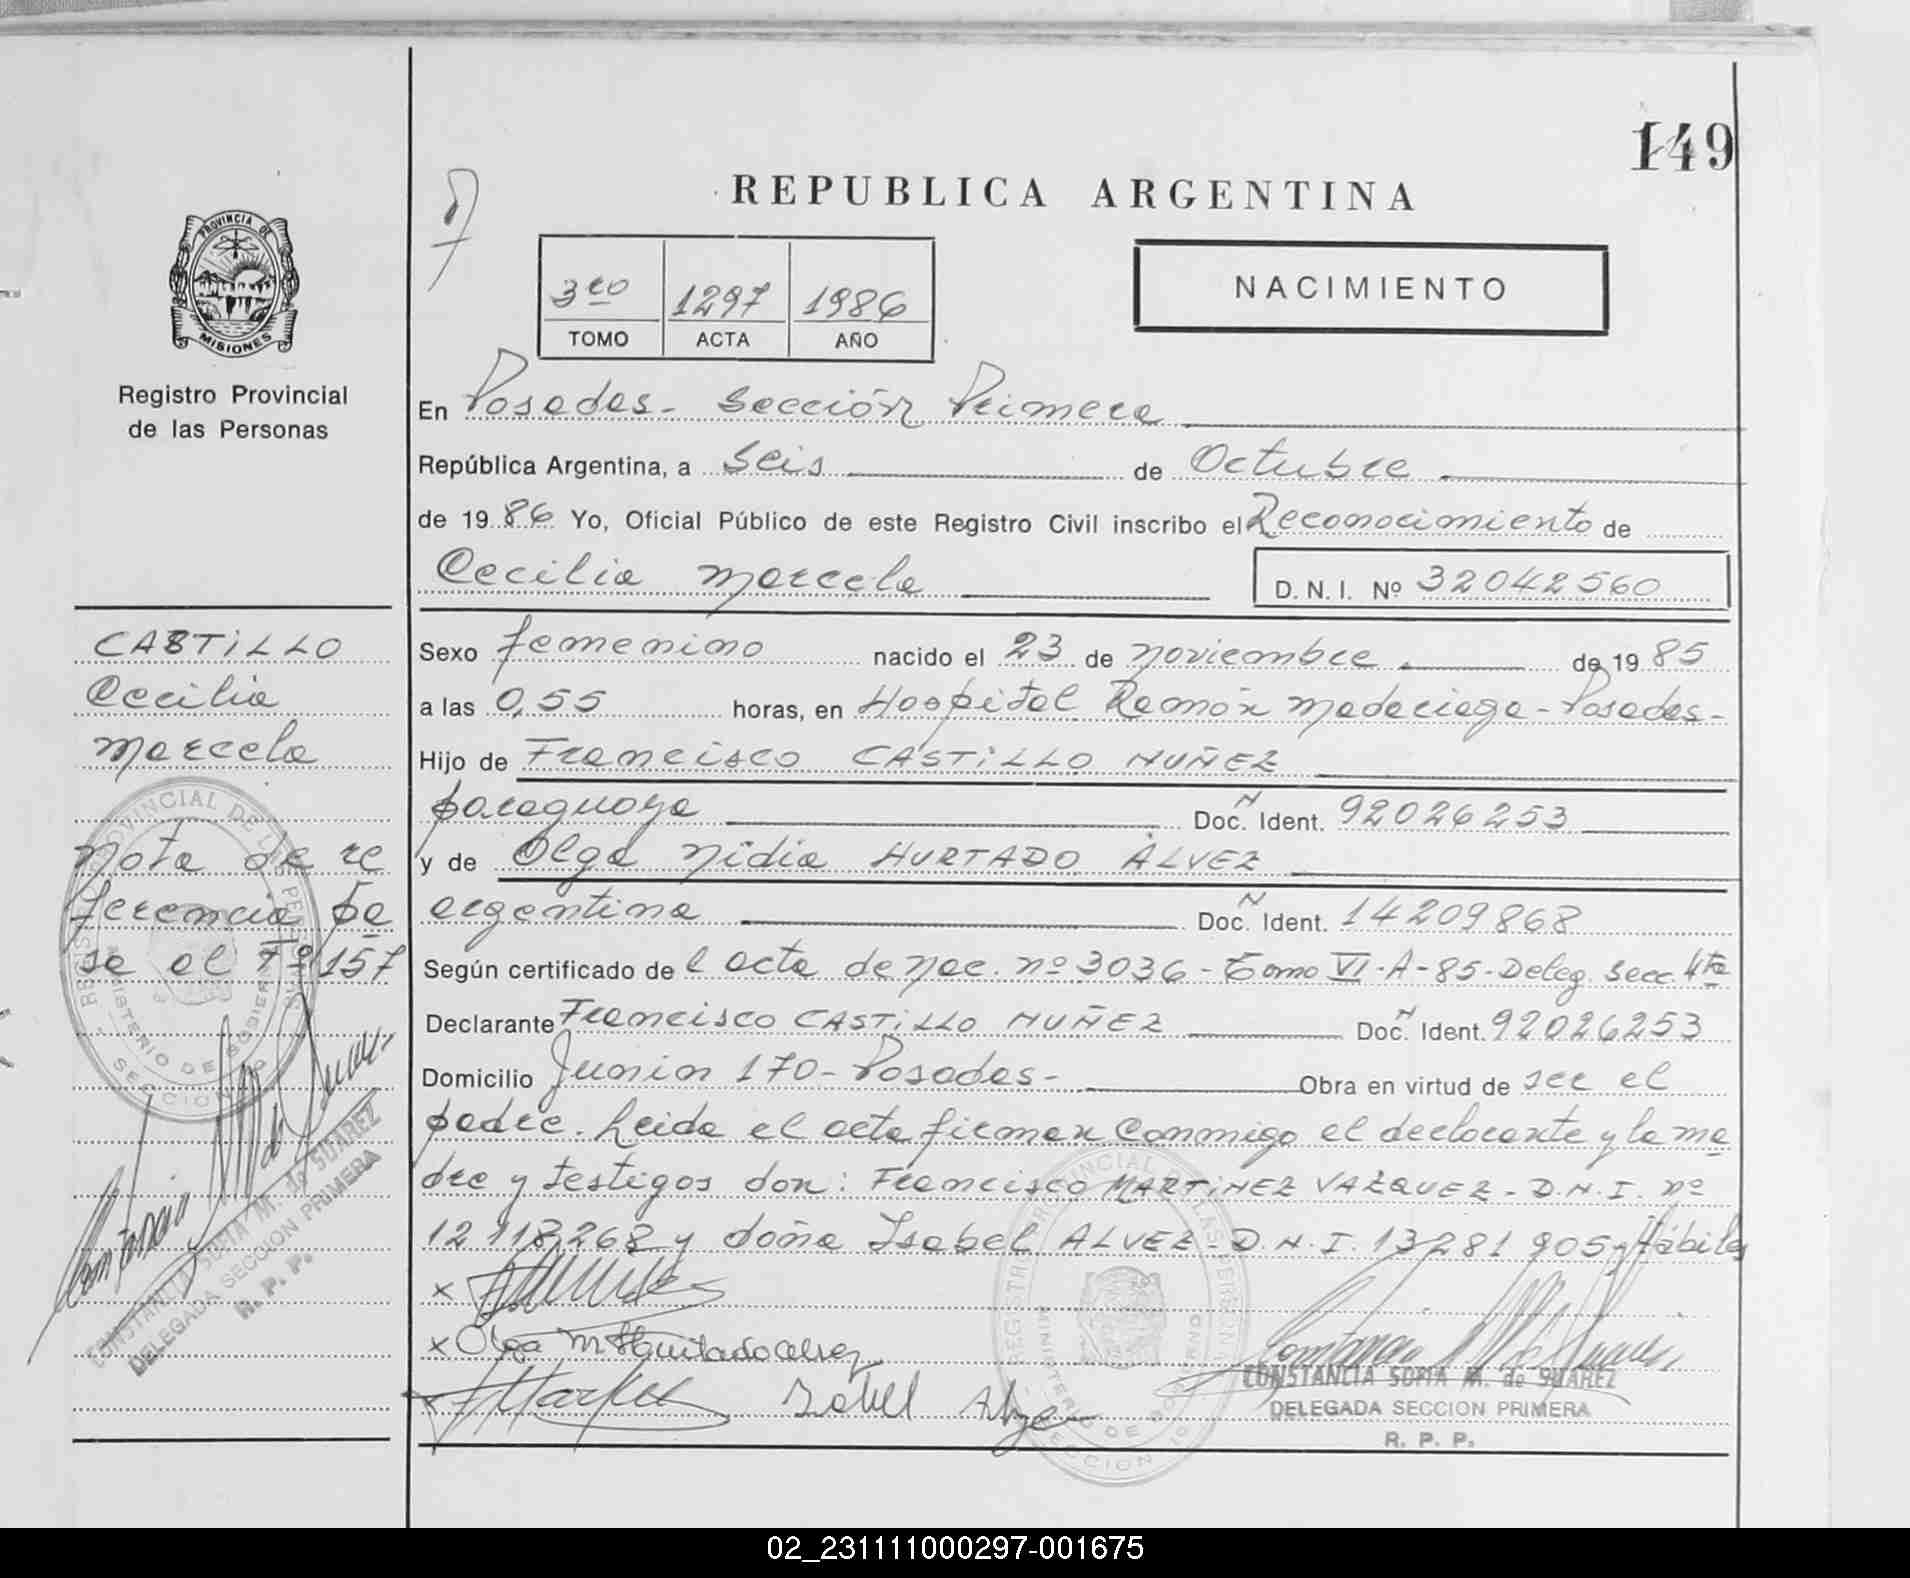 149
REPUBLICA ARGENTINA
PROVINCIA DE MISIONES
3ro 1297 1986
TOMO ACTA AÑO
NACIMIENTO
Registro Provincial
de las Personas
En Posadas - Sección Primera
República Argentina, a Seis de Octubre
de 1986 Yo, Oficial Público de este Registro Civil inscribo el Reconocimiento de
Cecilia Marcela D. N. I. Nº 32042560
CASTILLO
Cecilia
Marcela
Nota de re
ferencia pa
sa al Fº 157
CONSTANCIA SOFIA M. de SUAREZ
DELEGADA SECCION PRIMERA
R. P. P.
Sexo femenino nacido el 23 de noviembre de 1985
a las 0,55 horas, en Hospital Ramón Madariaga - Posadas -
Hijo de Francisco CASTILLO NUÑEZ
paraguaya Doc. N Ident. 92026253
y de Olga Nidia HURTADO ALVEZ
argentina Doc. N Ident. 14209868
Según certificado del acta de Nac. nº 3036 - Tomo VI - A - 85 - Deleg. Secc. 4ta
Declarante Francisco CASTILLO NUÑEZ Doc. N Ident. 92026253
Domicilio Junin 170 - Posadas - Obra en virtud de ser el
padre. Leida el acta firman conmigo el declarante y la ma
dre y testigos don: Francisco MARTINEZ VAZQUEZ - D.N.I. nº
12118268 y doña Isabel ALVEZ - D.N.I. 13281905 y Hábiles
x
x Olga N Hurtado alvez
x Isabel Alvez
CONSTANCIA SOFIA M. de SUAREZ
DELEGADA SECCION PRIMERA
R. P. P.
02_231111000297-001675